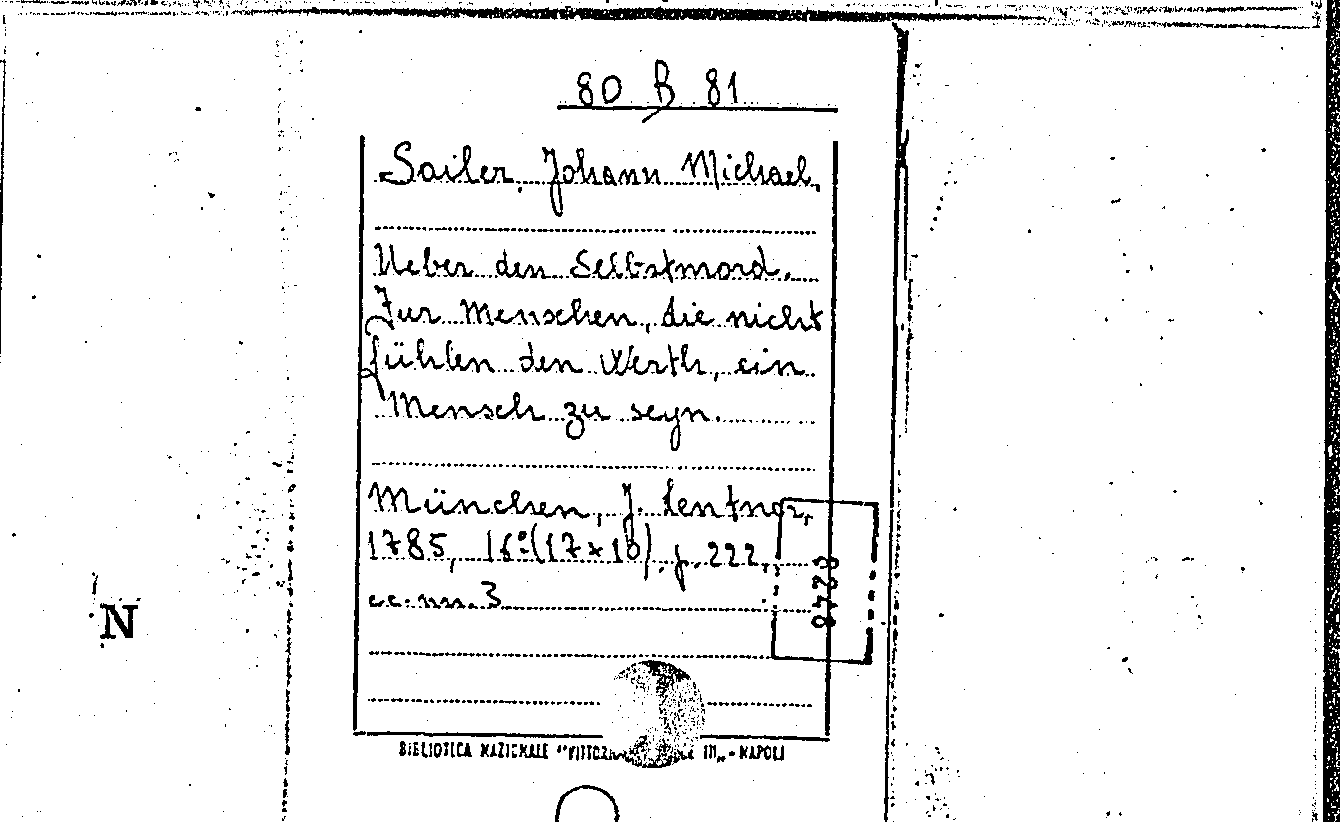 80 B 81
Sailer, Johann Michael.
Ueber den Selbstmord.
Fur Menschen, die nicht
fühlen den Werth, ein
Mensch zu seyn.
München, J. Lentner,
1785, 16°(17x10). p. 222,
cc. nn. 3
8248
N
BIBLIOTECA NAZIONALE "VITTORIO III" - NAPOLI